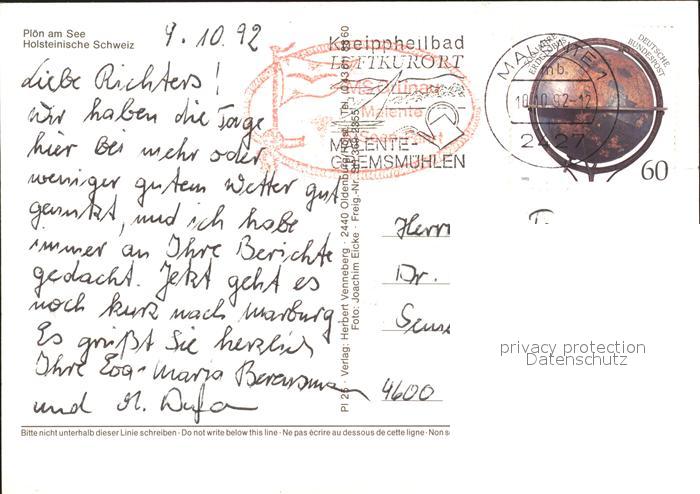 Plön am See
Holsteinische Schweiz
9.10.92
Liebe Richters!
Wir haben die Tage
hier bei mehr oder
weniger gutem Wetter gut
genutzt, und ich habe
immer an Ihre Berichte
gedacht. Jetzt geht es
noch kurz nach Marburg.
Es grüßt Sie herzlich
Ihre Eva-Maria
und
Pl 26 · Verlag: Herbert Venneberg · 2440 Oldenburg/Holst. · Tel.
Foto: Joachim Eicke · Freig.-Nr.
Kneippheilbad
LUFTKURORT
MALENTE-
GREMSMÜHLEN
MS
Malente
MALENTE 1
10.10.92-12
2427
DEUTSCHE
BUNDESPOST
60
Herrn
Dr.
4600
privacy protection
Datenschutz
Bitte nicht unterhalb dieser Linie schreiben · Do not write below this line · Ne pas écrire au dessous de cette ligne · Non s